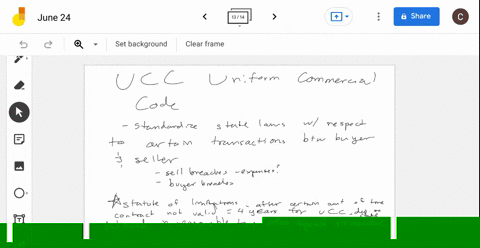 June 24
13 / 14
Share
C
Set background
Clear frame
UCC Uniform Commercial
Code
- Standardize state laws w/ respect
to certain transactions btw buyer
& seller
- sell breaches - expenses?
- buyer breaches
Statute of limitations - after certain amt of time
contract not valid = 4 years for UCC